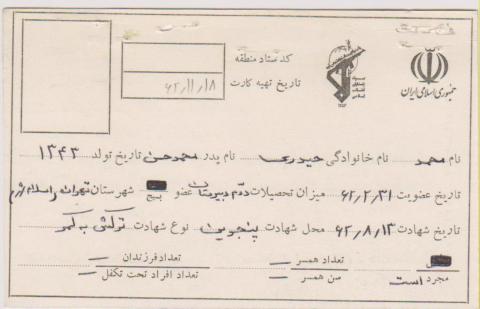 جمهوری اسلامی ایران
کد ستاد منطقه
تاریخ تهیه کارت ۶۲/۱۱/۱۸
نام محمد نام خانوادگی حیدری نام پدر محمدحسن تاریخ تولد ۱۳۴۳
تاریخ عضویت ۶۲/۲/۳۱ میزان تحصیلات دوم دبیرستان عضو بسیج شهرستان تهران
تاریخ شهادت ۶۲/۸/۱۳ محل شهادت پنجوین نوع شهادت ترکش به کمر
تعداد همسر — تعداد فرزندان —
مجرد است سن همسر — تعداد افراد تحت تکفل —